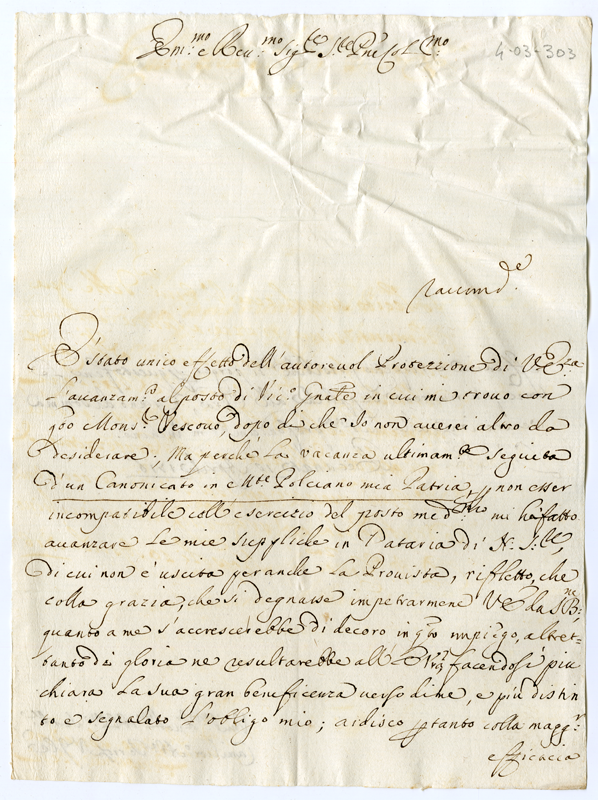 Em.mo e Rev.mo Sig.re Sre Pne Col.mo
4-03-303
Raccom.de
È stato unico effetto dell'autorevol Protezzione di V.Eza
l'avanzam.to al posto di Vic.o Gnāle in cui mi trovo con
q̄to Mons.r Vescovo, dopo di che Io non averei altro da
desiderare; Ma perchè la vacanza ultimam.te seguita
d'un Canonicato in Mte Polciano mia Patria, p non esser
incompatibile coll'esercizio del posto med.mo mi hà fatto
avanzare le mie suppliche in Dataria di N. S.re,
di cui non è uscita per anche la Provista, rifletto, che
colla grazia, che si degnasse impetrarmene V.E. da S. B.ne
quanto a me s'accrescerebbe di decoro in q̄to impiego, altret-
tanto di gloria ne resultarebbe all' E. Vra facendosi più
chiara la sua gran beneficenza verso di me, e più distin
to e segnalato l'obligo mio; ardisco p tanto colla magg.r
efficacia